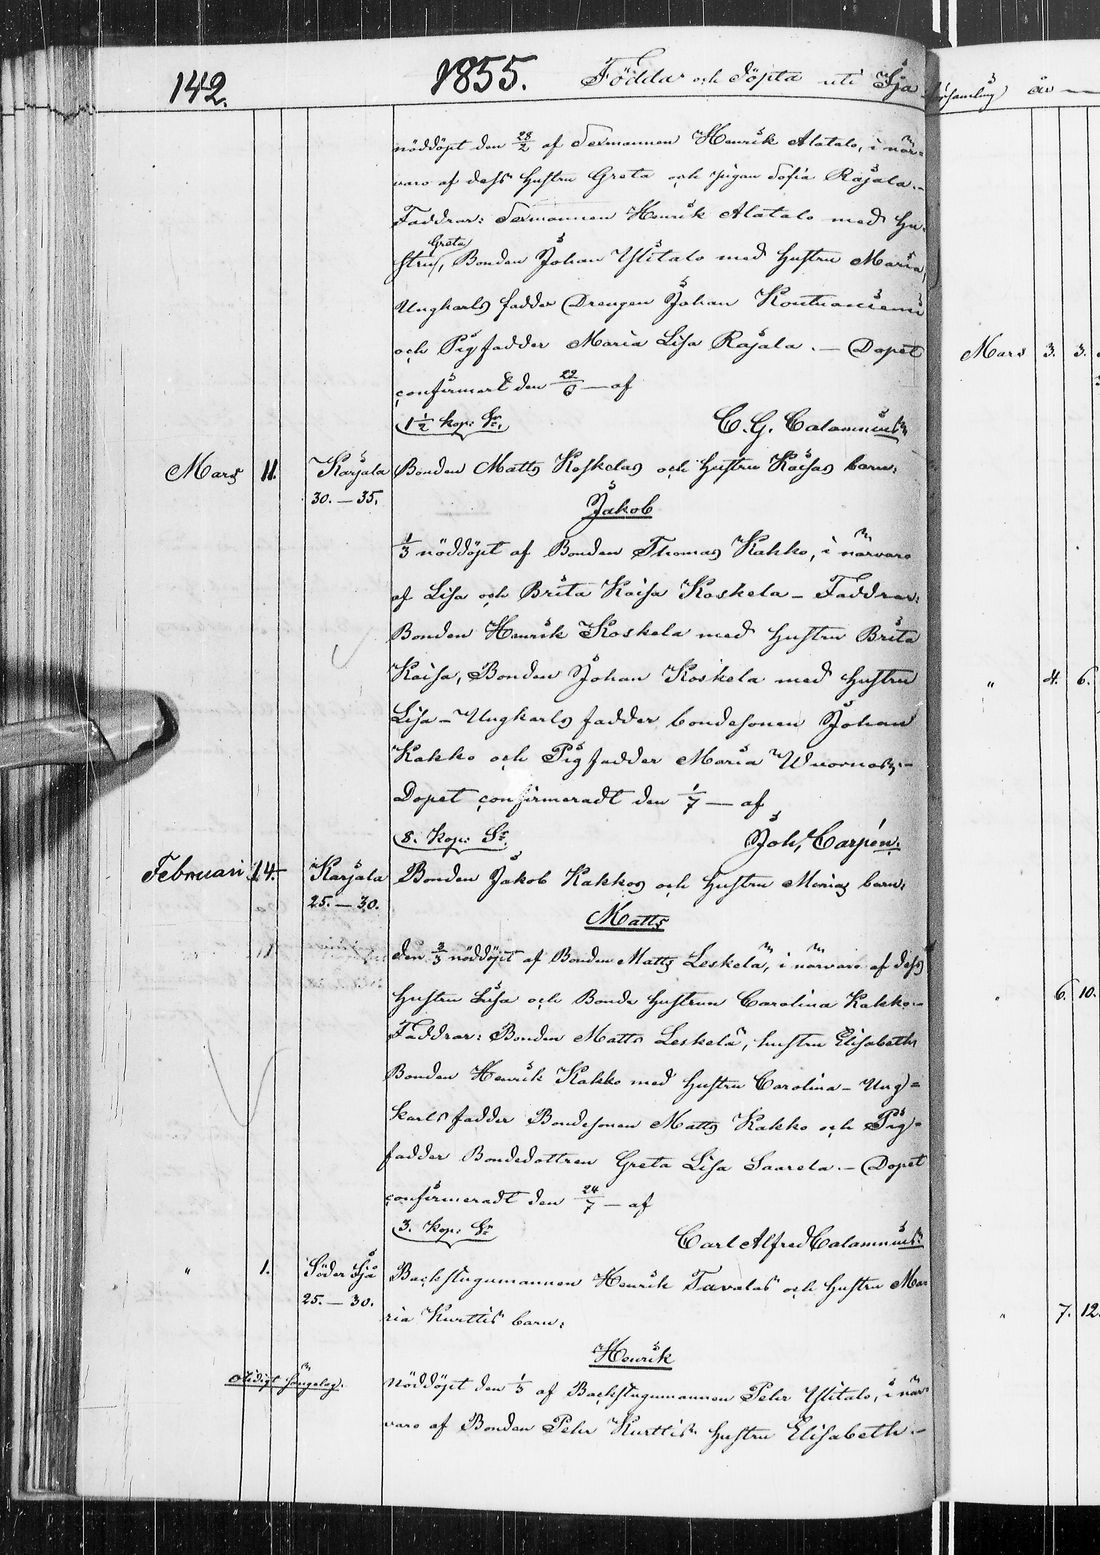 142. 1855. Födda och Döpta uti Ijo församling år
nöddöpt den 28/2 af Sexmannen Henrik Alatalo, i när=
varo af dess hustru Greta och pigan Sofia Rajala.-
Faddrar: Sexmannen Henrik Alatalo med hu-
stru Greta, Bonden Johan Ylitalo med hustru Maria,
Ungkarls fadder Drengen Johan Kontuaniemi
och Pigfadder Maria Lisa Rajala. — Dopet
confirmert den 22/6 — af
1 1/2 kop: Sr. C. G. Calamnius
Mars 11. Karjala Bonden Matts Koskelas och hustru Kaisas barn:
30. — 35. Jakob
1/3 nöddöpt af Bonden Thomas Kakko, i närvaro
af Lisa och Brita Kaisa Koskela - Faddrar:
Bonden Henrik Koskela med hustru Brita
Kaisa, Bonden Johan Koskela med hustru
Lisa - Ungkarls fadder bondesonen Johan
Kakko och Pigfadder Maria
Dopet confirmeradt den 1/7 — af
8. kop: Sr. Joh. Carpén.
Februari 14. Karjala Bonden Jakob Kakkos och hustru Marias barn:
25. — 30. Matts
den 3/3 nöddöpt af Bonden Matts Leskelä, i närvaro af dess
hustru Lisa och Bonde hustrun Carolina Kakko.-
Faddrar: Bonden Matts Leskelä, hustru Elisabeth
Bonden Henrik Kakko med hustru Carolina - Ung=
karls fadder Bondesonen Matts Kakko och Pig=
fadder Bondedottren Greta Lisa Saarela. — Dopet
confirmeradt den 24/7 — af
3. kop: Sr. Carl Alfred Calamnius.
" 1. Söder Ijo Backstugumannen Henrik Tavalas och hustru Ma=
25. — 30. ria Kurttis barn:
Henrik
nöddöpt den 1/3 af Backstugumannen Pehr Ylitalo, i när=
varo af Bonden Pehr Kurttis hustru Elisabeth.-
Mars 3. 3.
" 4. 6.
" 6. 10.
" 7. 12.